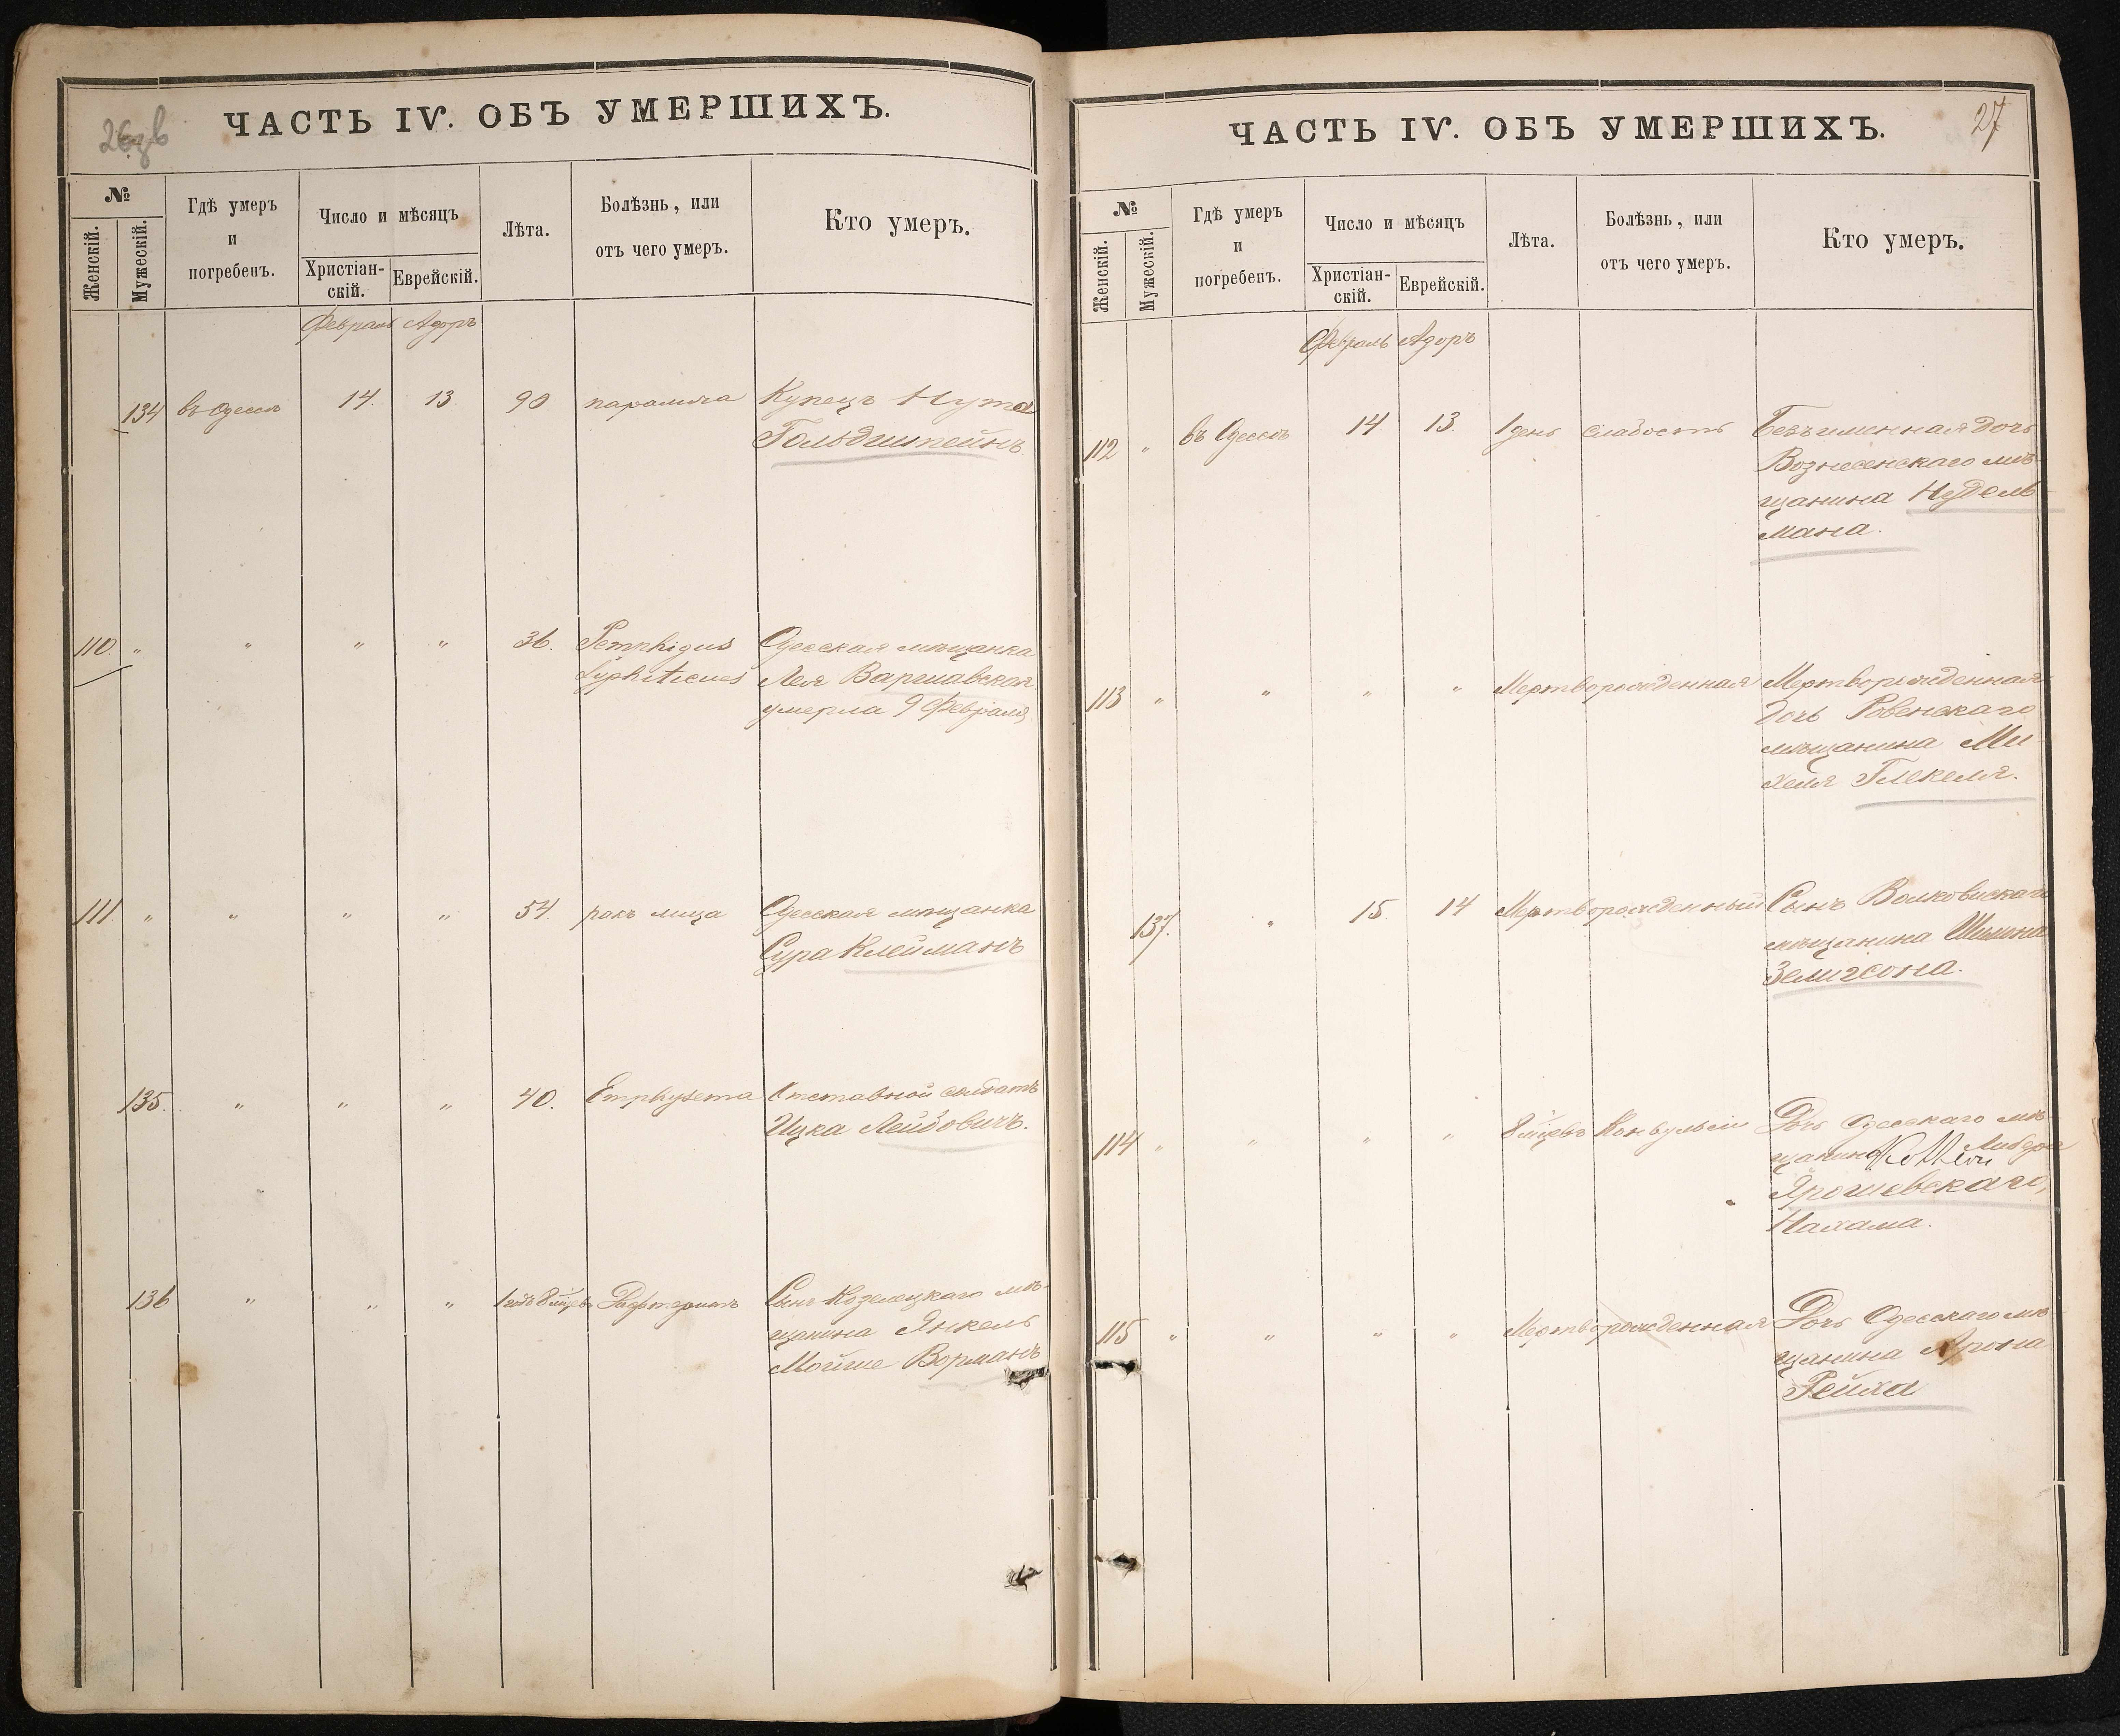 26зв
ЧАСТЬ IV. ОБЪ УМЕРШИХЪ.
№
Женскій.
Мужескій.
Гдѣ умеръ
и
погребенъ.
Число и мѣсяцъ
Христіан-
скій.
Еврейскій.
Лѣта.
Болѣзнь, или
отъ чего умеръ.
Кто умеръ.
Февраль Адоръ
134 въ Одессѣ 14. 13. 90 паралича Купецъ Нута
Гольдштейнъ.
110. " " " " 36. Pemphigus Одесская мѣщанка
Syphiticus Лея Варшавская
умерла 9 Февраля
111. " " " " 54. ракъ лица Одесская мѣщанка
Сура Клейманъ
135. " " " 40. Emphysema Отставной солдатъ
Ицка Лейбовичъ.
136 " " " 1 годъ 8 мцевъ Сынъ Козелецкаго мѣ-
щанина Янкель
Мойше Ворманъ
27
ЧАСТЬ IV. ОБЪ УМЕРШИХЪ.
№
Женскій.
Мужескій.
Гдѣ умеръ
и
погребенъ.
Число и мѣсяцъ
Христіан-
скій.
Еврейскій.
Лѣта.
Болѣзнь, или
отъ чего умеръ.
Кто умеръ.
Февраль Адоръ
112 " въ Одессѣ 14 13. 1 день слабость Безъименная дочь
Вознесенскаго мѣ-
щанина Нудель-
мана.
113 " " " " Мертворожденная Мертворожденная
дочь Ровенскаго
мѣщанина Ми-
хеля Глекеля.
137. " 15. 14 Мертворожденный Сынъ Волковискаго
мѣщанина Шимона
Зелигсона.
114 " " " " 8 мцевъ Конвульсіи Дочь Одесскаго мѣ-
щанина
Ярошевскаго,
Нахама.
115 " " " " Мертворожденная Дочь Одесскаго мѣ-
щанина Арона
Рейха